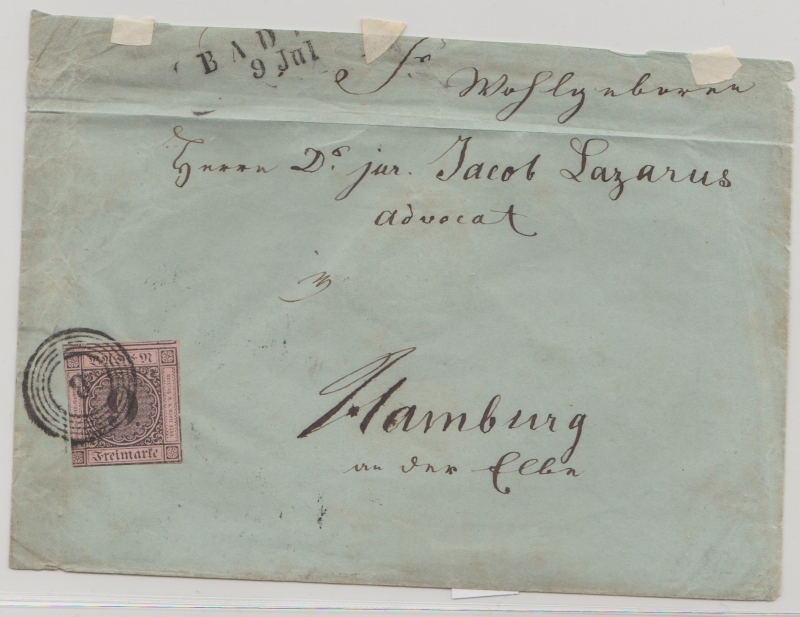 BAD.
9 Jul
Sr Wohlgeboren
Herrn Dr. jur. Jacob Lazarus
Advocat
Hamburg
an der Elbe
BADEN
9
Freimarke